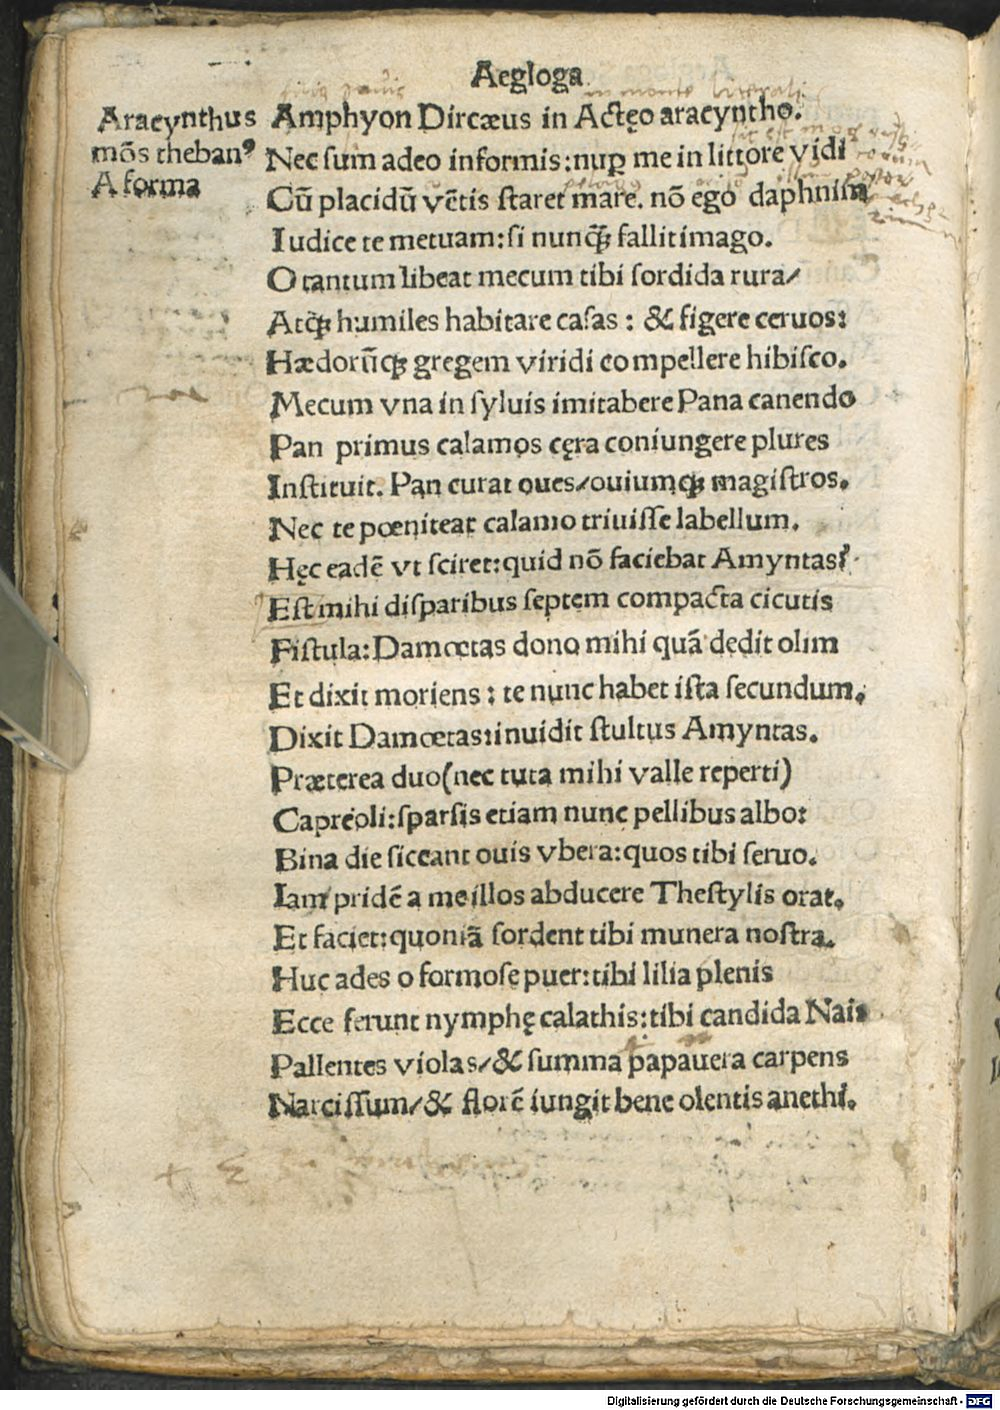 Aegloga
Aracynthus
mōs thebanꝰ
A forma
in monte
Amphyon Dircæus in Actęo aracyntho.
Nec sum adeo informis:nuꝑ me in littore vidi
Cū placidū vētis staret mare. nō ego daphnim
Iudice te metuam:si nunꝙ̃ fallit imago.
O tantum libeat mecum tibi sordida rura/
Atꝙ̃ humiles habitare casas : & figere ceruos:
Hædorūꝙ̃ gregem viridi compellere hibisco.
Mecum vna in syluis imitabere Pana canendo
Pan primus calamos cęra coniungere plures
Instituit. Pan curat oues/ouiumꝙ̃ magistros.
Nec te pœniteat calamo triuisse labellum.
Hęc eadē vt sciret:quid nō faciebat Amyntas?
Est mihi disparibus septem compacta cicutis
Fistula:Damœtas dono mihi quā dedit olim
Et dixit moriens : te nunc habet ista secundum.
Dixit Damœtas:inuidit stultus Amyntas.
Præterea duo(nec tuta mihi valle reperti)
Capreoli:sparsis etiam nunc pellibus albo:
Bina die siccant ouis vbera:quos tibi seruo.
Iam pridē a me illos abducere Thestylis orat.
Et faciet:quoniā sordent tibi munera nostra.
Huc ades o formose puer:tibi lilia plenis
Ecce ferunt nymphę calathis:tibi candida Nais
Pallentes violas/& summa papauera carpens
Narcissum/& florē iungit bene olentis anethi.
Digitalisierung gefördert durch die Deutsche Forschungsgemeinschaft - DFG